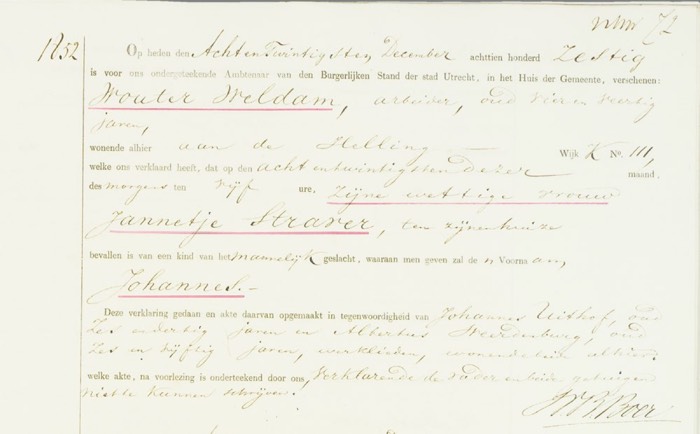 72
1852
Op heden den Acht en Twintigsten December achttien honderd Zestig
is voor ons ondergeteekende Ambtenaar van den Burgerlijken Stand der stad Utrecht, in het Huis der Gemeente, verschenen:
Wouter Weldam, arbeider, oud vier en veertig
jaren,
wonende alhier aan de Helling — Wijk K No. 111,
welke ons verklaard heeft, dat op den achtentwintigsten dezer maand,
des morgens ten vijf ure, Zijne wettige vrouw
Jannetje Straver, ten zijnen huize
bevallen is van een kind van het mannelijk geslacht, waaraan men geven zal de n Voorna am,
Johannes.-
Deze verklaring gedaan en akte daarvan opgemaakt in tegenwoordigheid van Johannes Uithof, oud
Zes en dertig jaren en Albertus Weerdenburg, oud
Zes en vijftig jaren, werklieden, wonende beide alhier.
welke akte, na voorlezing is onderteekend door ons, Verklarende de vader en beide getuigen
niet te kunnen schrijven.
Boer